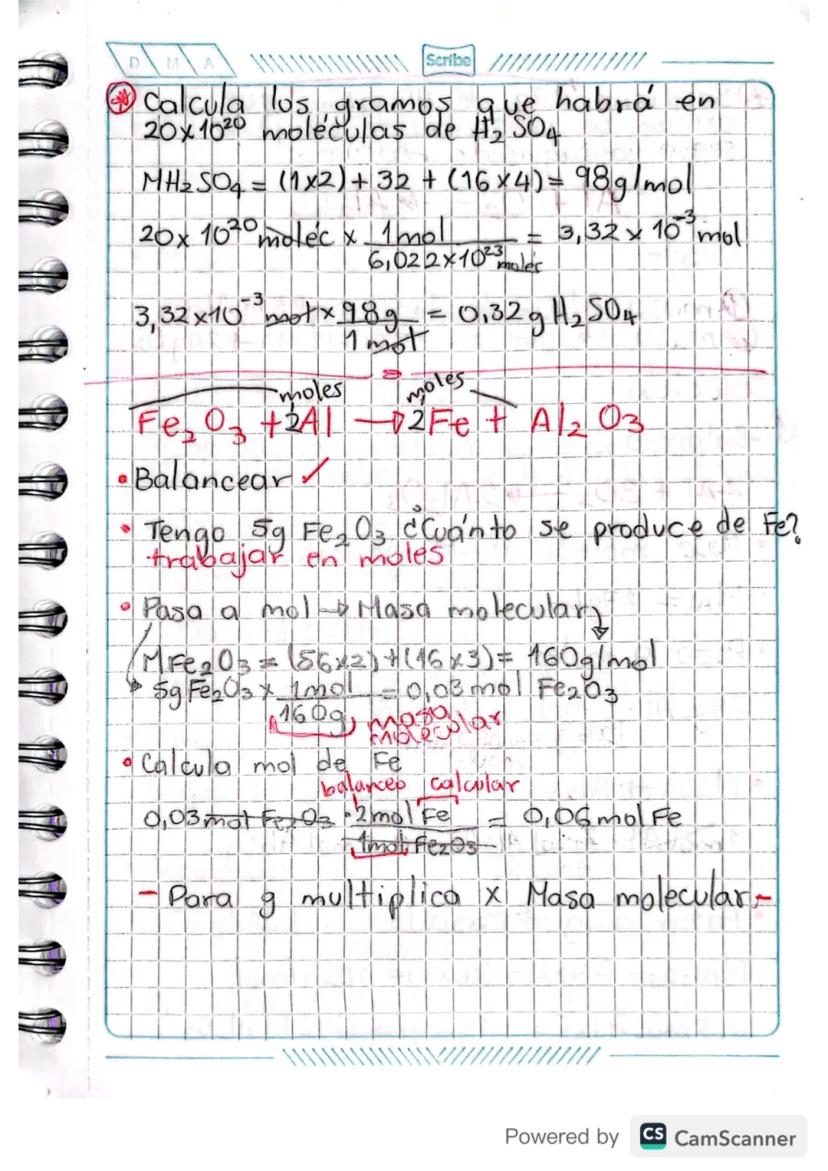 D M A Scribe
Calcula los gramos que habrá en
20x10²⁰ moléculas de H₂SO₄
MH₂SO₄ = (1x2) + 32 + (16x4) = 98g/mol
20x 10²⁰ moléc x 1mol / 6,022x10²³ moléc = 3,32 x 10⁻³ mol
3,32x10⁻³ mol x 98g / 1 mol = 0,32g H₂SO₄
moles moles
Fe₂O₃ + 2Al → 2Fe + Al₂O₃
• Balancear ✓
• Tengo 5g Fe₂O₃ ¿Cuánto se produce de Fe?
trabajar en moles
• Pasa a mol → Masa molecular
MFe₂O₃ = (56x2)+(16x3)= 160g/mol
5g Fe₂O₃ x 1mol / 160g = 0,03 mol Fe₂O₃
masa
molecular
• Calcula mol de Fe
balanceo calcular
0,03 mol Fe₂O₃ · 2mol Fe / 1mol Fe₂O₃ = 0,06 mol Fe
- Para g multiplica x Masa molecular -
Powered by CS CamScanner